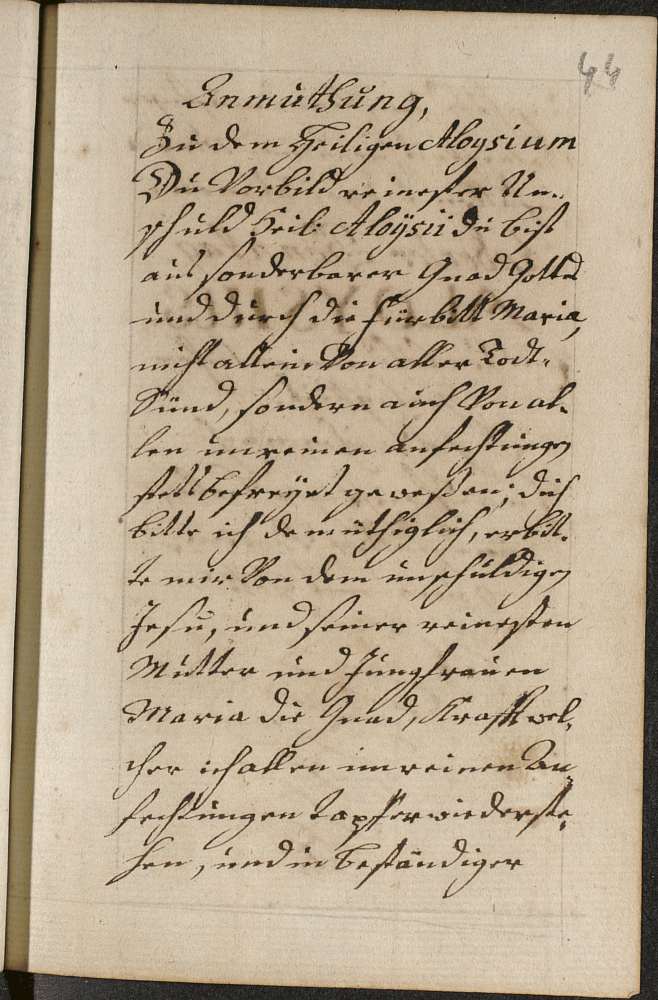 44
Anmuthung,
Zu dem Heiligen Aloysium
Du Vorbild reinester Un-
schuld Heil: Aloÿsii du bist
aus sonderbarer Gnad Gottes
und durch die fürbitt Maria,
nicht allein Von aller Todt-
Sünd, sondern auch Von al-
len unreinen anfechtungen
stets befreÿet geweßen; dich
bitte ich demüthiglich, erbit-
te mir Von dem unschuldigen
Jesu, und seiner reinesten
Mutter und Jungfrauen
Maria die Gnad, Krafft wel-
cher ich allen unreinen An-
fechtungen tapffer wiederste-
hen, und in beständiger